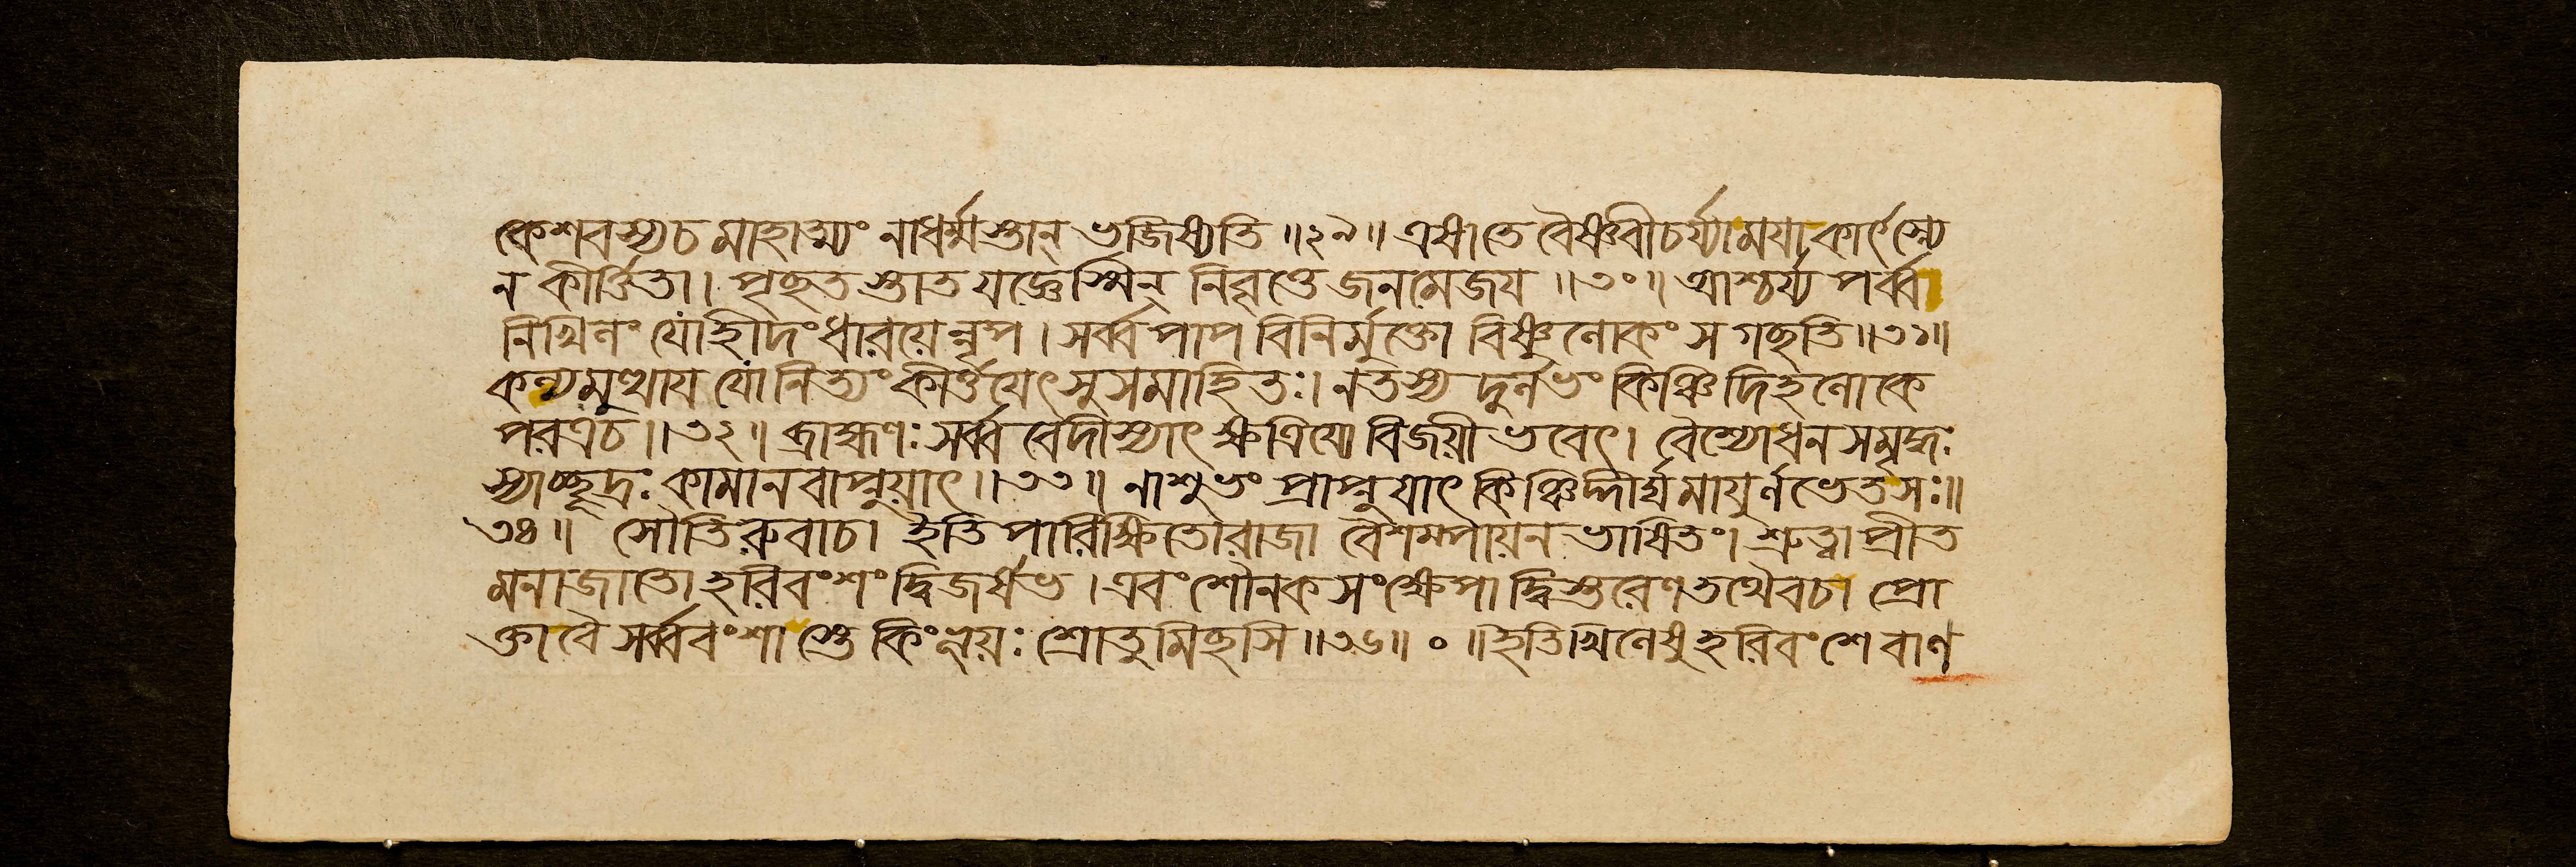 কেশবস্যচ মাহাত্ম্যং নাধর্ম্মস্তান্ ভজিষ্যতি ॥২৯॥ এষাতে বৈষ্ণবীচর্য্যা ময়া কার্ৎস্ন্যে
ন কীর্ত্তিতা। পৃছতস্তাত যজ্ঞেস্মিন্ নিবৃত্তে জনমেজয় ॥৩০॥ আশ্চর্য্য পর্ব্ব
নিখিলং যোহীদং ধারয়েন্নৃপ। সর্ব্ব পাপ বিনির্মুক্তো বিষ্ণুলোকং স গছতি॥৩১॥
কল্যমুত্থায় যো নিত্যং কীর্ত্তয়েৎ সুসমাহিতঃ। নতস্য দুর্লভং কিঞ্চিদিহলোকে
পরত্রচ॥৩২॥ ব্রাহ্মণঃ সর্ব্ব বেদীস্যাৎ ক্ষত্রিয়ো বিজয়ী ভবেৎ। বৈশ্যোধন সমৃদ্ধঃ
স্যাচ্ছূদ্রঃ কামানবাপ্নুয়াৎ॥৩৩॥ নাশুভং প্রাপ্নুয়াৎ কিঞ্চিদ্দীর্ঘমায়ুর্লভেতসঃ॥
৩৪॥ সৌতিরুবাচ। ইতি পারিক্ষিতোরাজা বৈশম্পায়ন ভাষিতং। শ্রুত্বা প্রীত
মনাজাতো হরিবংশং দ্বিজর্ষভ। এবং শৌনক সংক্ষেপাদ্বিস্তরেণ তথৈবচ। প্রো
ক্তাবৈ সর্ব্ববংশা স্তে কিংভূয়ঃ শ্রোতুমিছসি॥৩৬॥ ০ ॥ইতিখিলেষু হরিবংশে বাণ